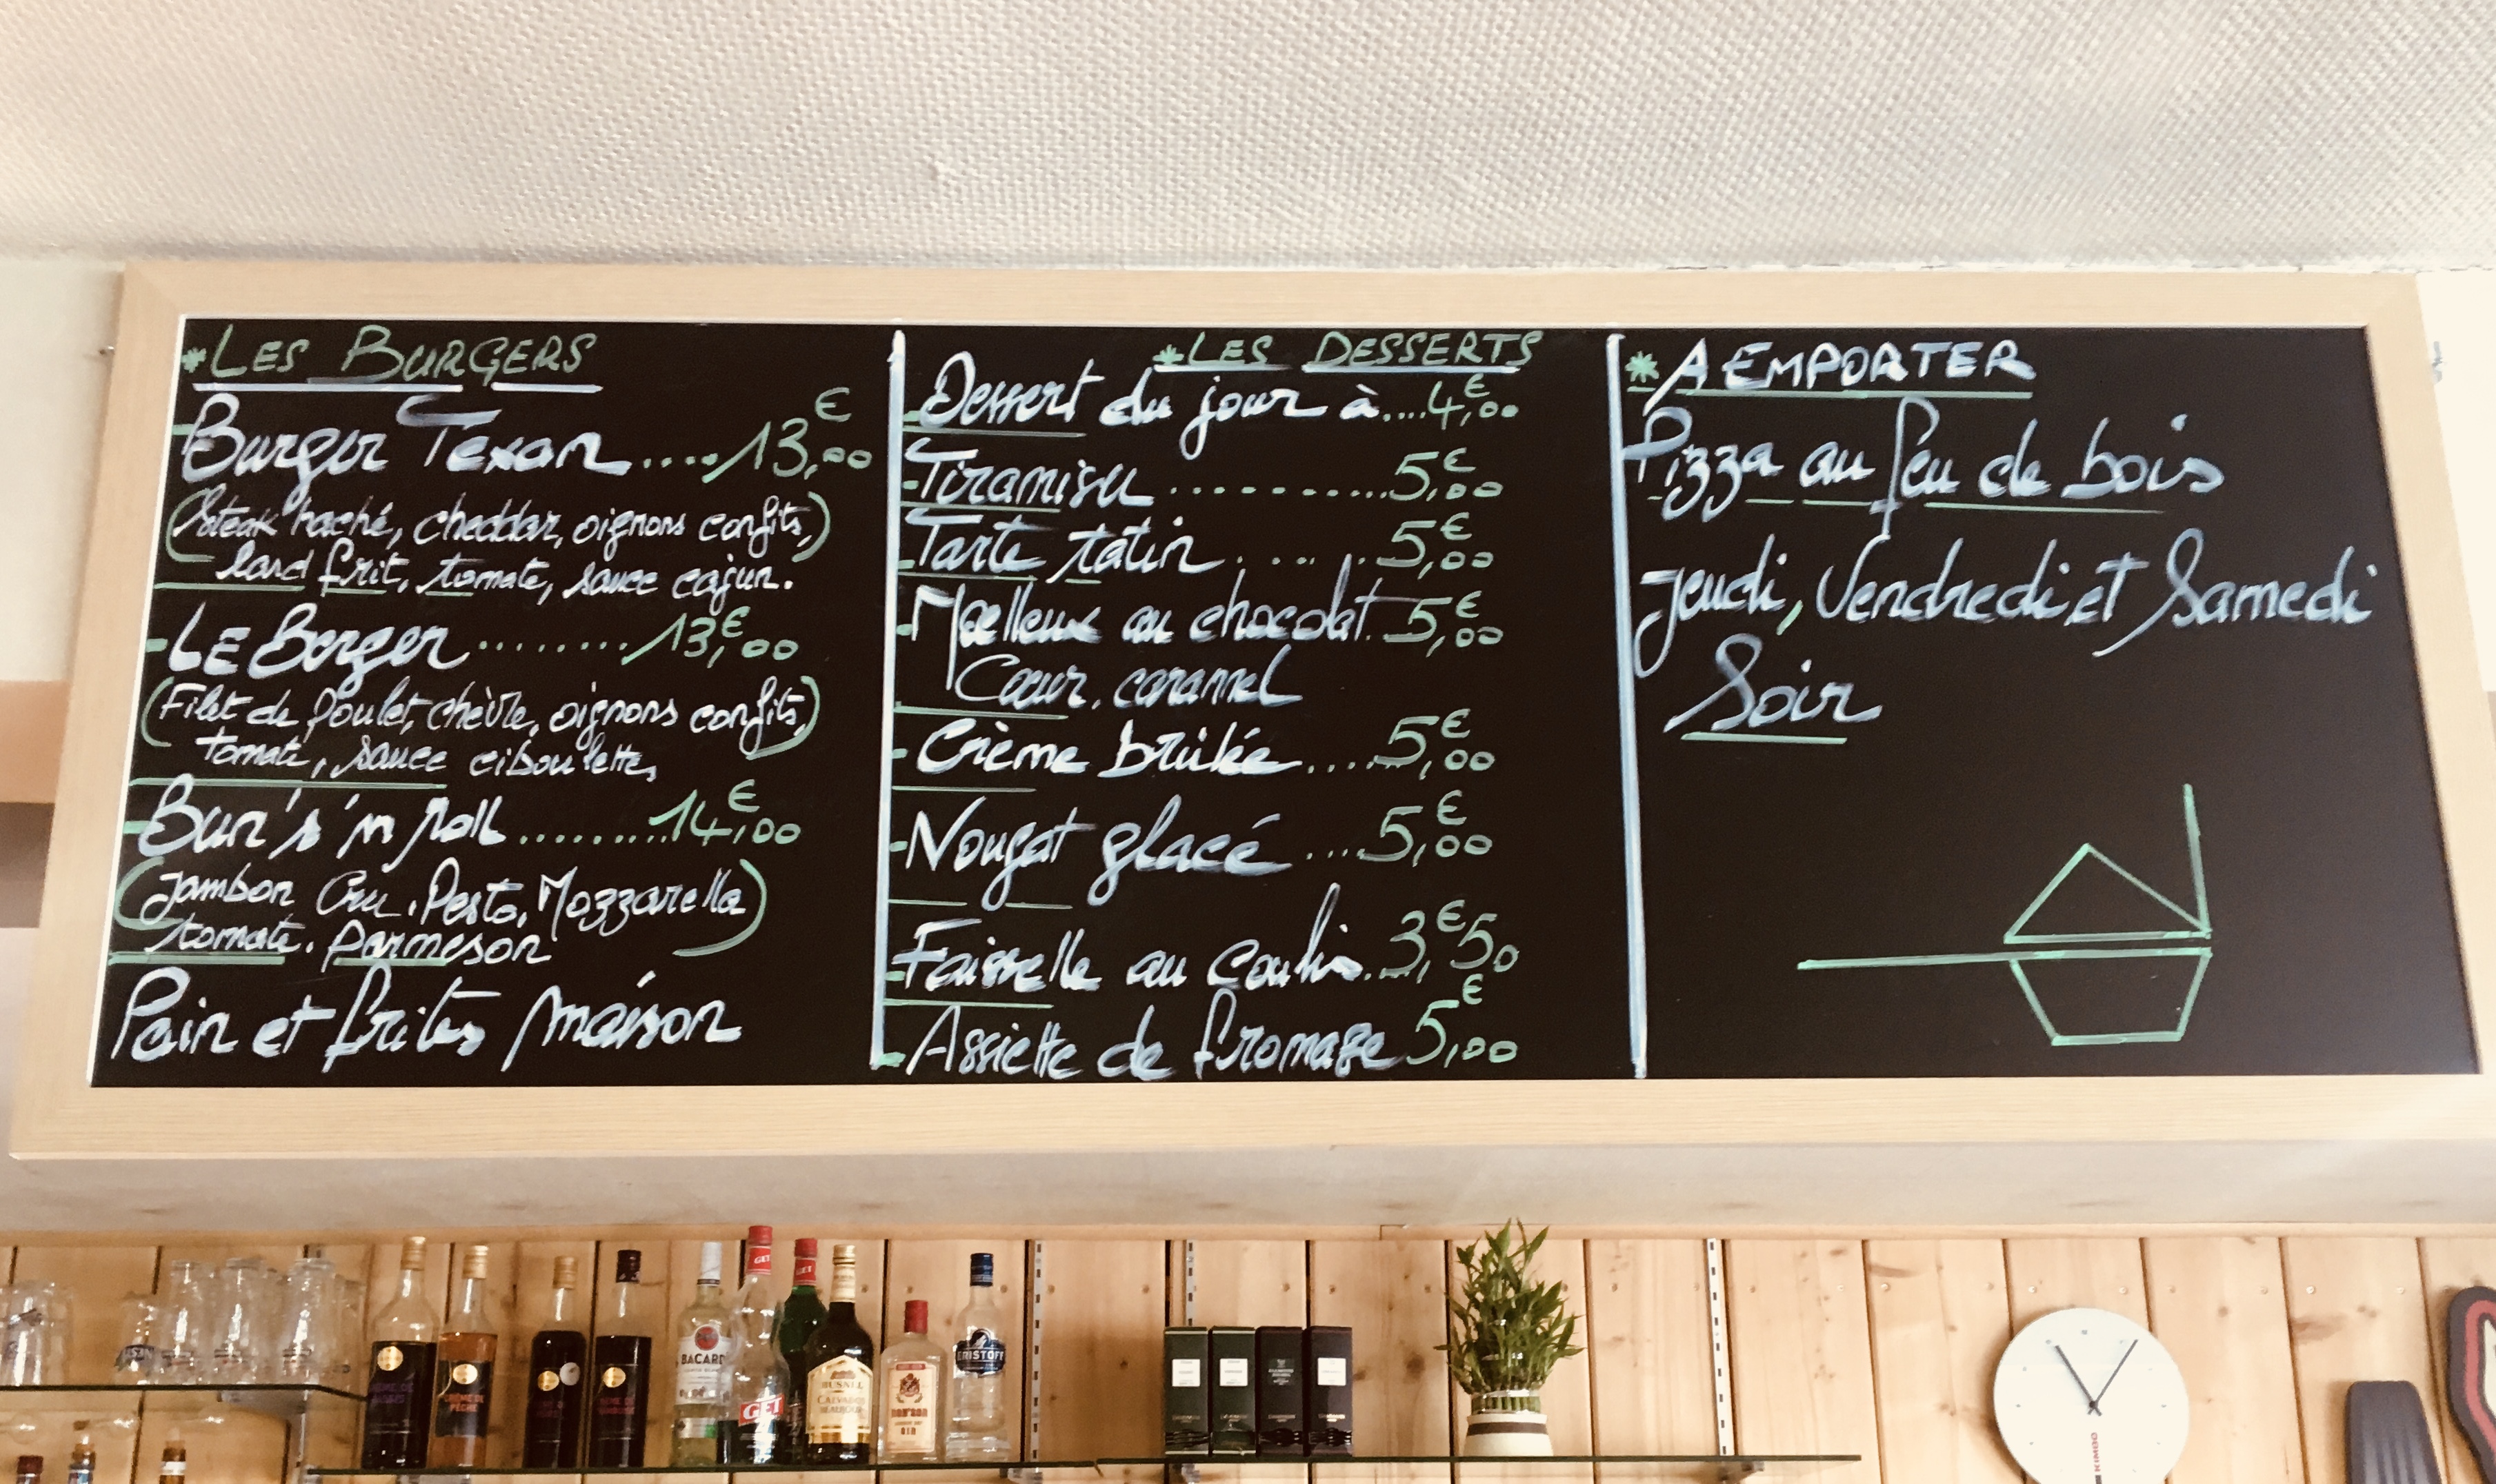 *LES BURGERS
Burger Texan....13,00€
(Steak haché, cheddar, oignons confits,
lard frit, tomate, sauce cajun.)
-LE Berger........13,00€
(Filet de poulet, chèvre, oignons confits,
tomate, sauce ciboulette,)
-Bun's 'n roll.........14,00€
(Jambon Cru, Pesto, Mozzarella
tomate, parmesan)
Pain et frites maison
*LES DESSERTS
-Dessert du jour à....4,00€
-Tiramisu...........5,00€
-Tarte tatin.......5,00€
-Moelleux au chocolat.5,00€
Cœur caramel
-Crème brûlée.....5,00€
-Nougat glacé....5,00€
-Faisselle au coulis...3,€50
-Assiette de fromage 5,00€
*A EMPORTER
Pizza au feu de bois
Jeudi, Vendredi et Samedi
Soir
CRÈME DE
PÊCHE
BACARDI
GET
GET
GET
BUSNEL
CALVADOS
GIN
ERISTOFF
KIMBO